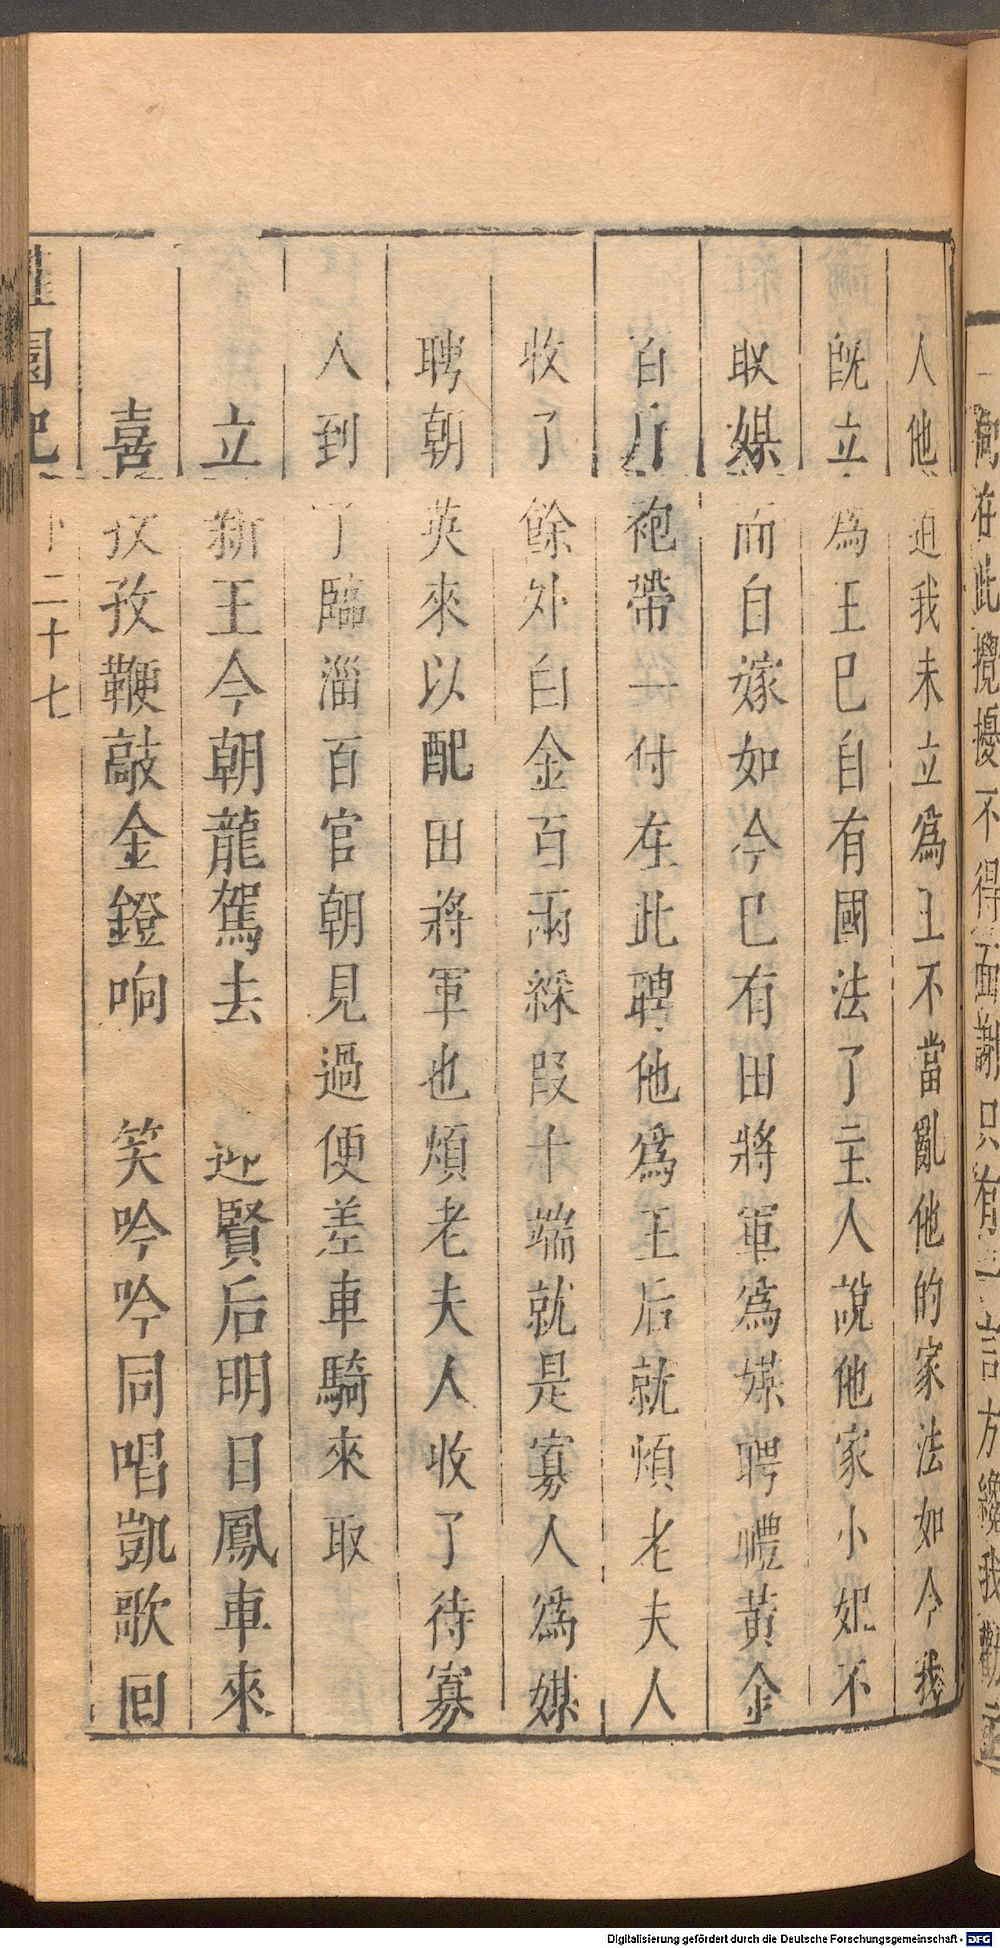 人他迫我未立為王不當亂他的家法如今我
既立為王已自有國法了主人說他家小姐不
取媒而自嫁如今已有田將軍為媒聘禮黃金
百斤袍帶一付在此聘他為王后就煩老夫人
收了餘外白金百兩綵段十端就是寡人為媒
聘朝英來以配田將軍也煩老夫人收了待寡
人到了臨淄百官朝見過便差車騎來取
立新王今朝龍駕去 迎賢后明日鳳車來
喜孜孜鞭敲金鐙响 笑吟吟同唱凱歌回
園記
二十七
在此攪擾不得面謝只有一言方纔我勸
Digitalisierung gefördert durch die Deutsche Forschungsgemeinschaft - DFG